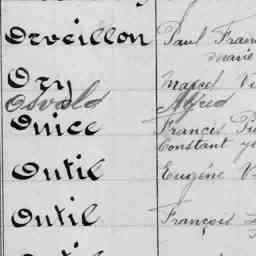 Orveillon Paul
Marie
Ory Marcel
Osvald Alfred
Ouice Francis
Constant
Outil Eugène
Outil François